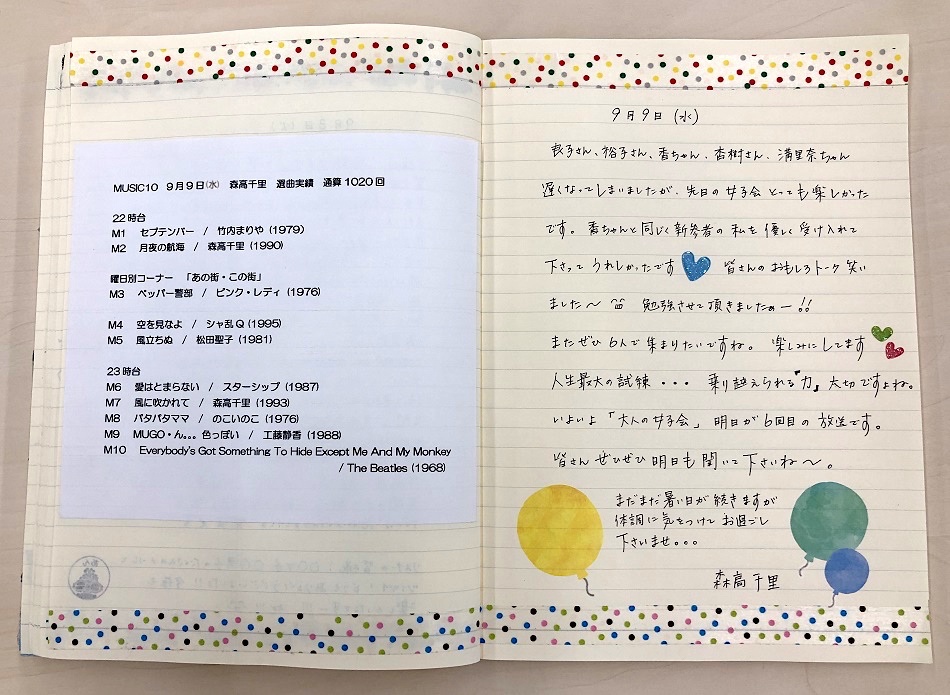 MUSIC10 9月9日(水) 森高千里 選曲実績 通算1020回
22時台
M1 セプテンバー / 竹内まりや (1979)
M2 月夜の航海 / 森高千里 (1990)
曜日別コーナー 「あの街・この街」
M3 ペッパー警部 / ピンク・レディ (1976)
M4 空を見なよ / シャ乱Q (1995)
M5 風立ちぬ / 松田聖子 (1981)
23時台
M6 愛はとまらない / スターシップ (1987)
M7 風に吹かれて / 森高千里 (1993)
M8 パタパタママ / のこいのこ (1976)
M9 MUGO・ん。。。色っぽい / 工藤静香 (1988)
M10 Everybody's Got Something To Hide Except Me And My Monkey
/ The Beatles (1968)
9月9日 (水)
良子さん、裕子さん、香ちゃん、杏樹さん、満里奈ちゃん
遅くなってしまいましたが、先日の女子会 とっても楽しかった
です。香ちゃんと同じく新参者の私を優しく受け入れて
下さって うれしかったです 皆さんのおもしろトーク 笑い
ました〜 勉強させて頂きましたぁー!!
またぜひ6人で集まりたいですね。楽しみにしてます
人生最大の試練・・・ 乗り越えられる"力" 大切ですよね。
いよいよ「大人の女子会」明日が6回目の放送です。
皆さん ぜひぜひ明日も聞いて下さいね〜。
まだまだ暑い日が続きますが
体調に気をつけてお過ごし
下さいませ。。。
森高千里